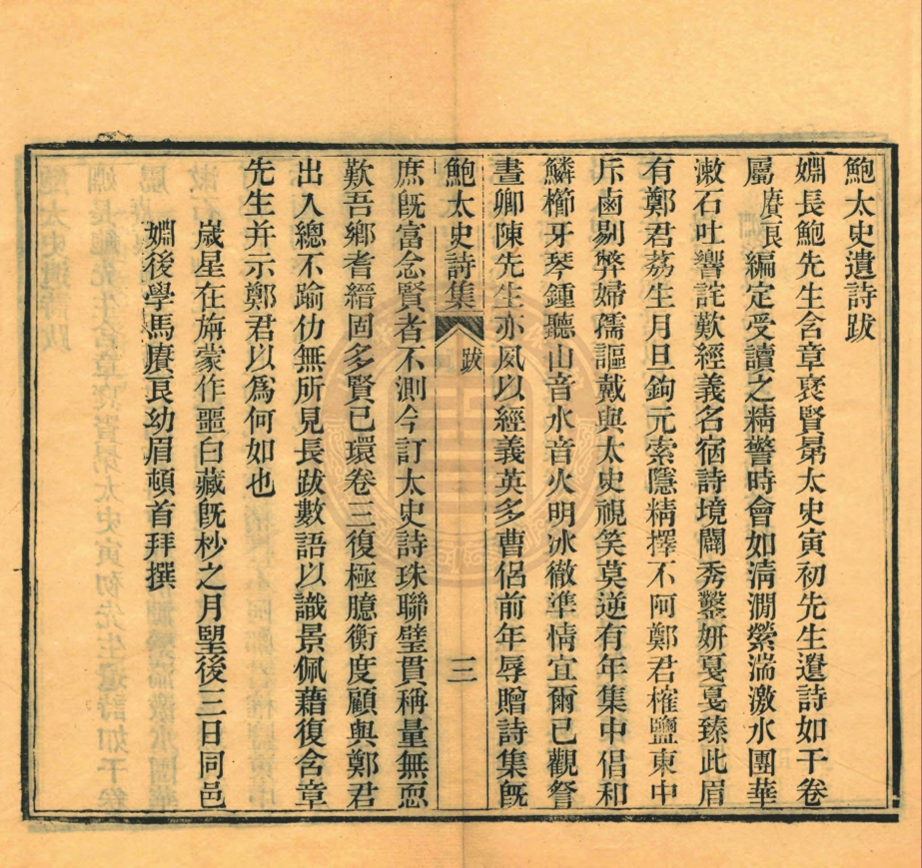 鮑太史遺詩跋
嫺長鮑先生含章裒賢昴太史寅初先生遺詩如干卷
屬賡良編定受讀之精警時會如淸澗縈湍激水團華
漱石吐響詫歎經義名宿詩境闢秀鑿妍戞戞臻此眉
有鄭君荔生月旦鉤元索隱精擇不阿鄭君榷鹽東中
斥鹵剔弊婦孺謳戴與太史視笑莫逆有年集中倡和
鱗櫛牙琴鍾聽山音水音火明冰徹準情宜爾已觀詧
晝卿陳先生亦夙以經義英多曹侶前年辱贈詩集旣
鮑太史詩集 跋 三
庶旣富念賢者不測今訂太史詩珠聯璧貫稱量無恧
歎吾鄉耆縉固多賢已環卷三復極臆衡度顧與鄭君
出入總不踰仂無所見長跋數語以識景佩藉復含章
先生并示鄭君以爲何如也
歲星在旃蒙作噩臼藏旣杪之月朢後三日同邑
嫺後學馬賡良幼眉頓首拜撰